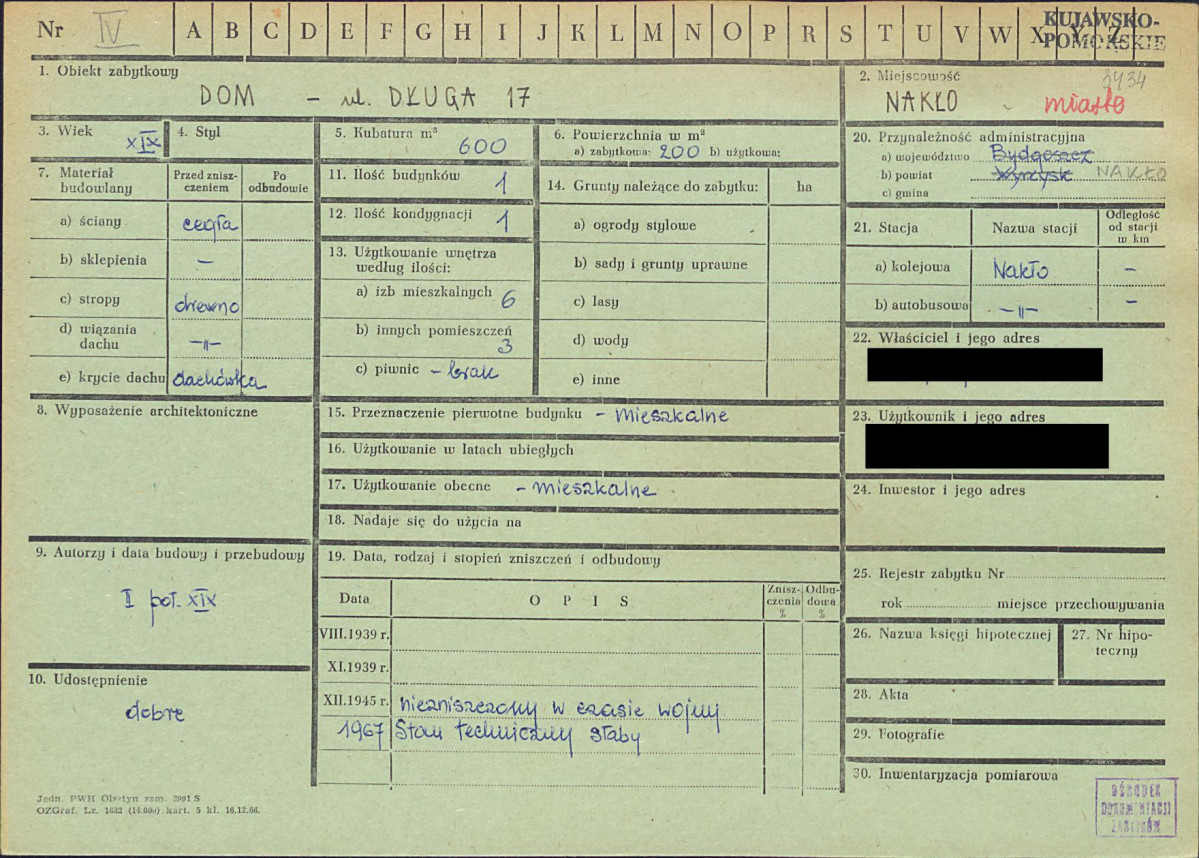 Nr IV A B C D E F G H I J K L M N O P R S T U V W X Y Z
KUJAWSKO-
POMORSKIE
1. Obiekt zabytkowy
DOM - ul. DŁUGA 17
2. Miejscowość
3434
NAKŁO miasto
3. Wiek
XIX
4. Styl
5. Kubatura m³
600
6. Powierzchnia w m²
a) zabytkowa: 200 b) użytkowa:
7. Materiał budowlany
Przed zniszczeniem
Po odbudowie
a) ściany cegła
b) sklepienia –
c) stropy drewno
d) wiązania dachu –"–
e) krycie dachu dachówka
8. Wyposażenie architektoniczne
9. Autorzy i data budowy i przebudowy
II poł. XIX
10. Udostępnienie
dobre
11. Ilość budynków 1
12. Ilość kondygnacji 1
13. Użytkowanie wnętrza
według ilości:
a) izb mieszkalnych 6
b) innych pomieszczeń
3
c) piwnic - brak
14. Grunty należące do zabytku: ha
a) ogrody stylowe
b) sady i grunty uprawne
c) lasy
d) wody
e) inne
15. Przeznaczenie pierwotne budynku - mieszkalne
16. Użytkowanie w latach ubiegłych
17. Użytkowanie obecne - mieszkalne
18. Nadaje się do użycia na
19. Data, rodzaj i stopień zniszczeń i odbudowy
Data OPIS Zniszczenia % Odbudowa %
VIII.1939 r.
XI.1939 r.
XII.1945 r. niezniszczony w czasie wojny
1967 Stan techniczny słaby
20. Przynależność administracyjna
a) województwo Bydgoszcz
b) powiat Wyrzysk NAKŁO
c) gmina
21. Stacja Nazwa stacji Odległość od stacji w km
a) kolejowa Nakło –
b) autobusowa –"– –
22. Właściciel i jego adres
23. Użytkownik i jego adres
24. Inwestor i jego adres
25. Rejestr zabytku Nr
rok miejsce przechowywania
26. Nazwa księgi hipotecznej
27. Nr hipoteczny
28. Akta
29. Fotografie
30. Inwentaryzacja pomiarowa
OŚRODEK
DOKUMENTACJI
ZABYTKÓW
Jedn. PWH Olsztyn zam. 2991 S
OZGraf. Lz. 1682 (14.000) kart. 5 kl. 16.12.66.